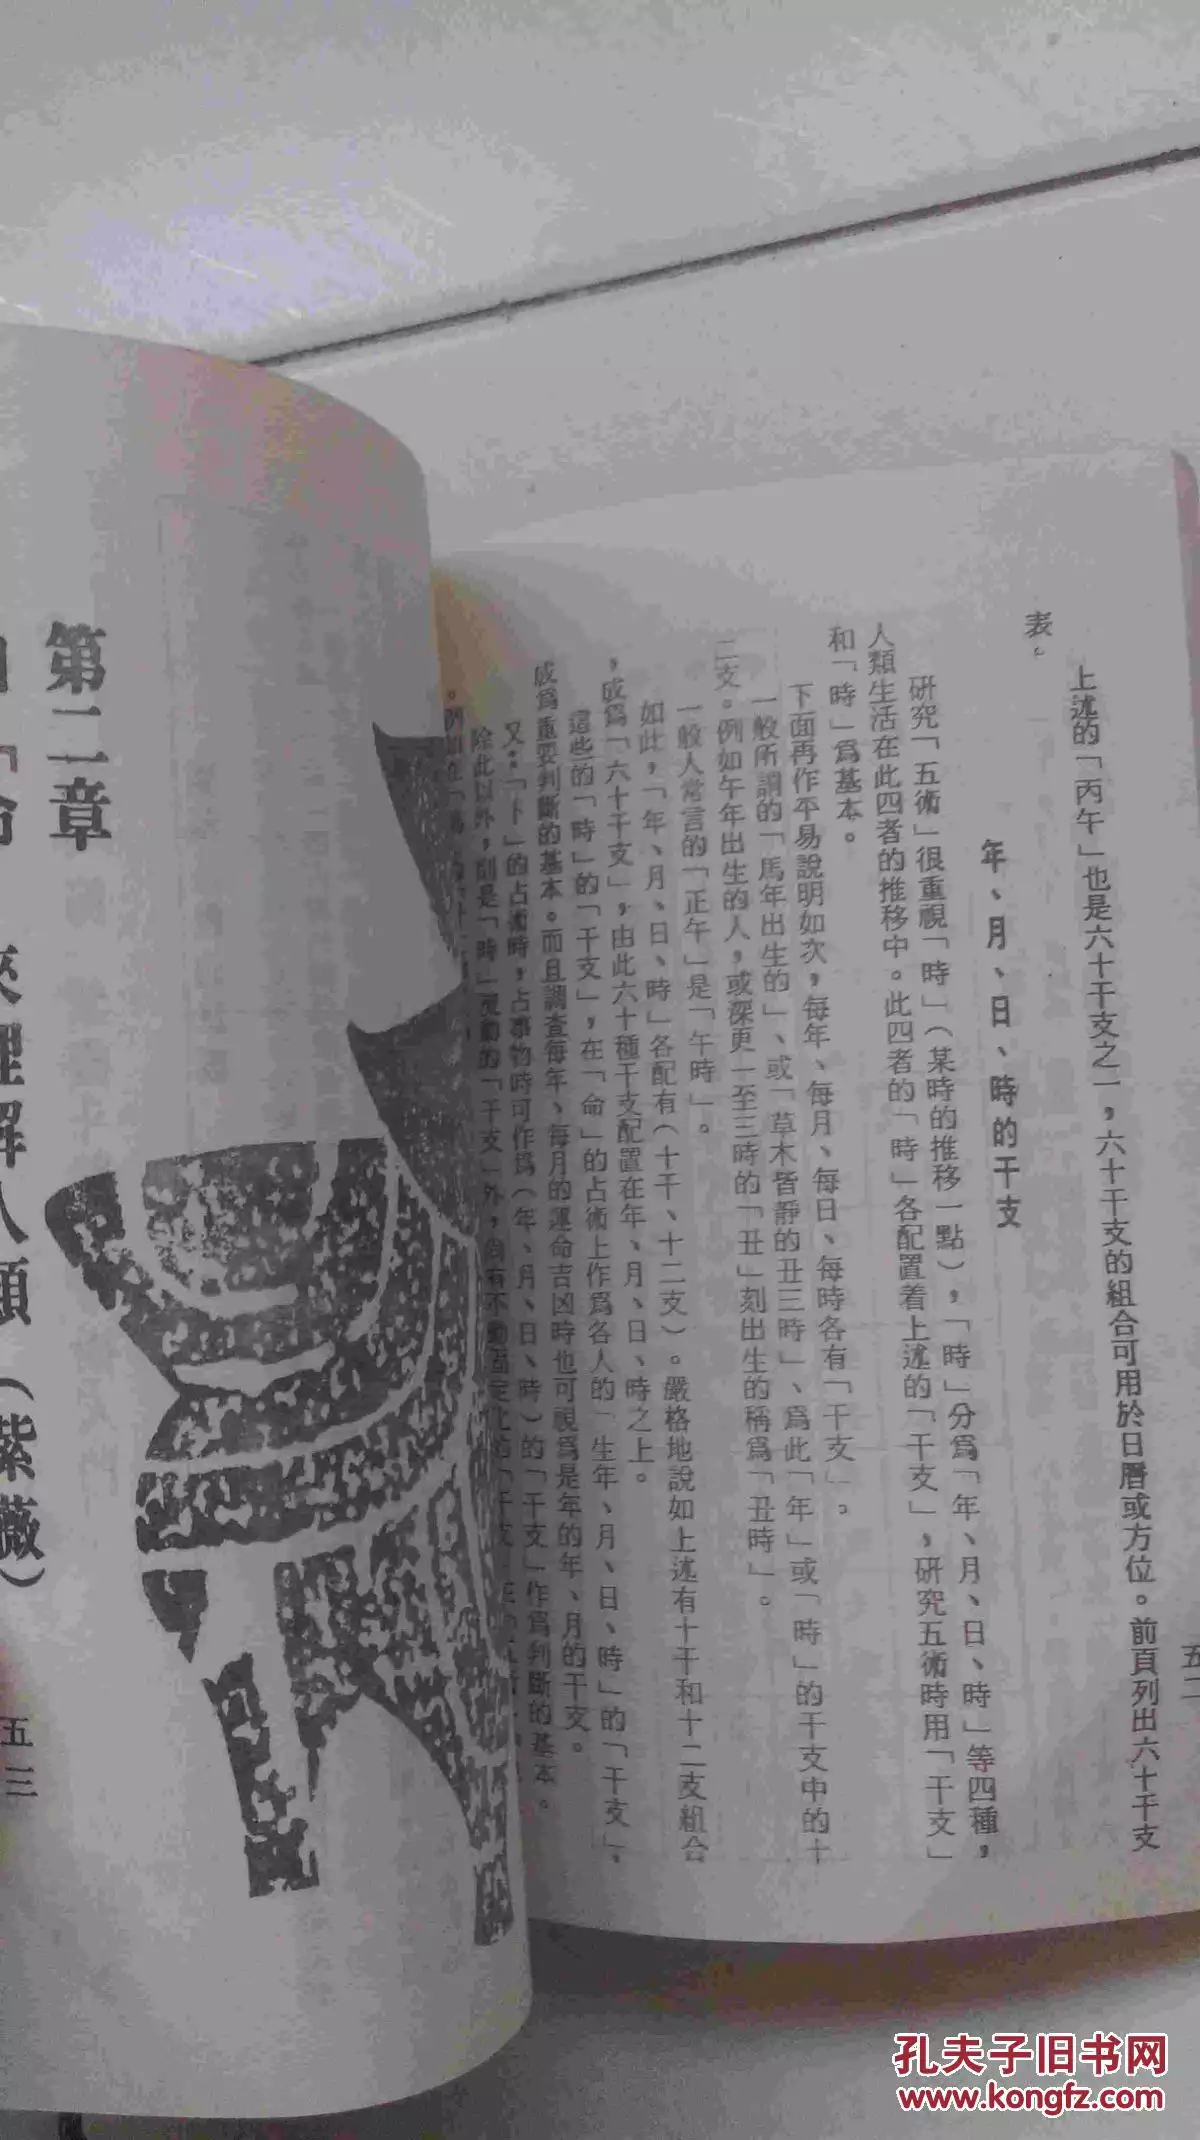 五二
上述的「丙午」也是六十干支之一，六十干支的組合可用於日曆或方位。前頁列出六十干支
表。
年、月、日、時的干支
研究「五術」很重視「時」（某時的推移一點），「時」分爲「年、月、日、時」等四種，
人類生活在此四者的推移中。此四者的「時」各配置着上述的「干支」，研究五術時用「干支」
和「時」爲基本。
下面再作平易說明如次，每年、每月、每日、每時各有「干支」。
一般所謂的「馬年出生的」、或「草木皆靜的丑三時」、爲此「年」或「時」的干支中的十
二支。例如午年出生的人，或深更一至三時的「丑」刻出生的稱爲「丑時」。
一般人常言的「正午」是「午時」。
如此，「年、月、日、時」各配有（十干、十二支）。嚴格地說如上述有十干和十二支組合
，成爲「六十干支」，由此六十種干支配置在年、月、日、時之上。
這些的「時」的「干支」，在「命」的占術上作爲各人的「生年、月、日、時」的「干支」，
成爲重要判斷的基本。而且調查每年、每月的運命吉凶時也可視爲是年的年、月的干支。
又：「卜」的占術時，占事物時可作爲（年、月、日、時）的「干支」作爲判斷的基本。
除此以外，則是「時」變動的「干支」外，尚有不動固定化的「干支
。例如在「
第二章
來理解人類（紫薇）
五三
孔夫子旧书网
www.kongfz.com